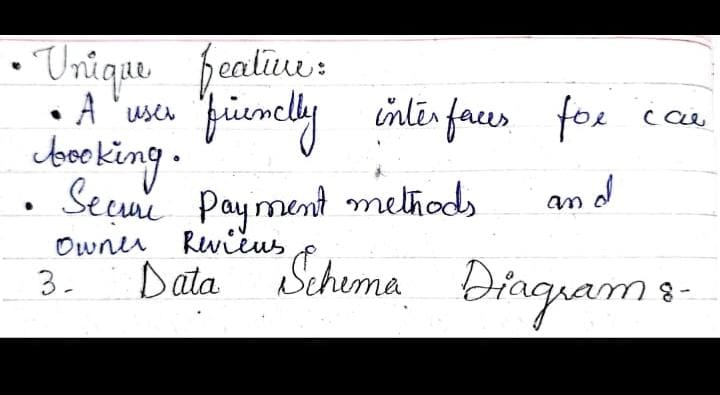 • Unique feature:
• A user friendly interfaces for car
booking.
• Secure Payment methods and
owner Reviews.
3- Data Schema Diagram :-